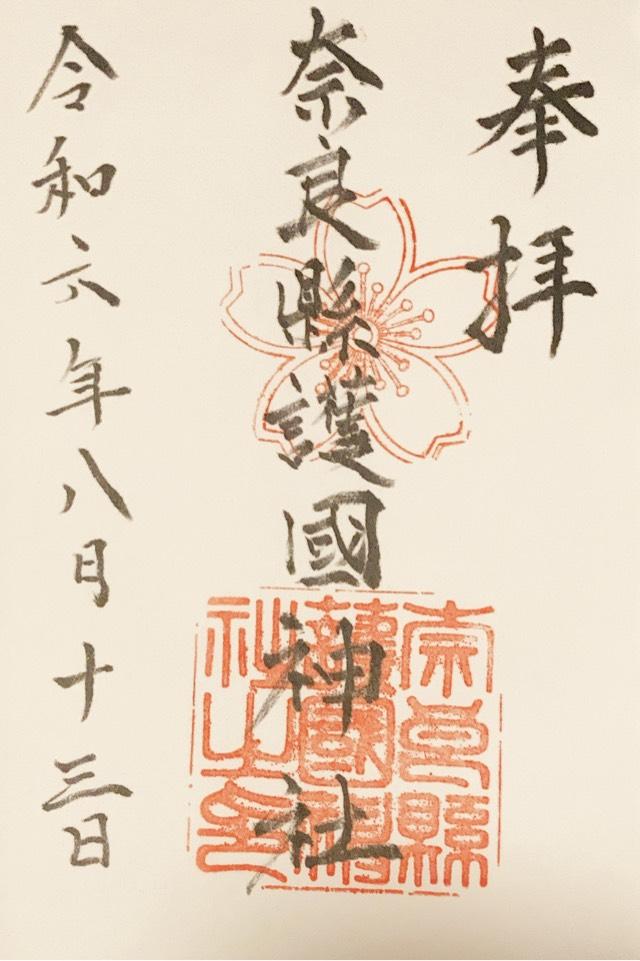 奉拝
奈良縣護國神社
奈良縣護國神社之印
令和六年八月十三日